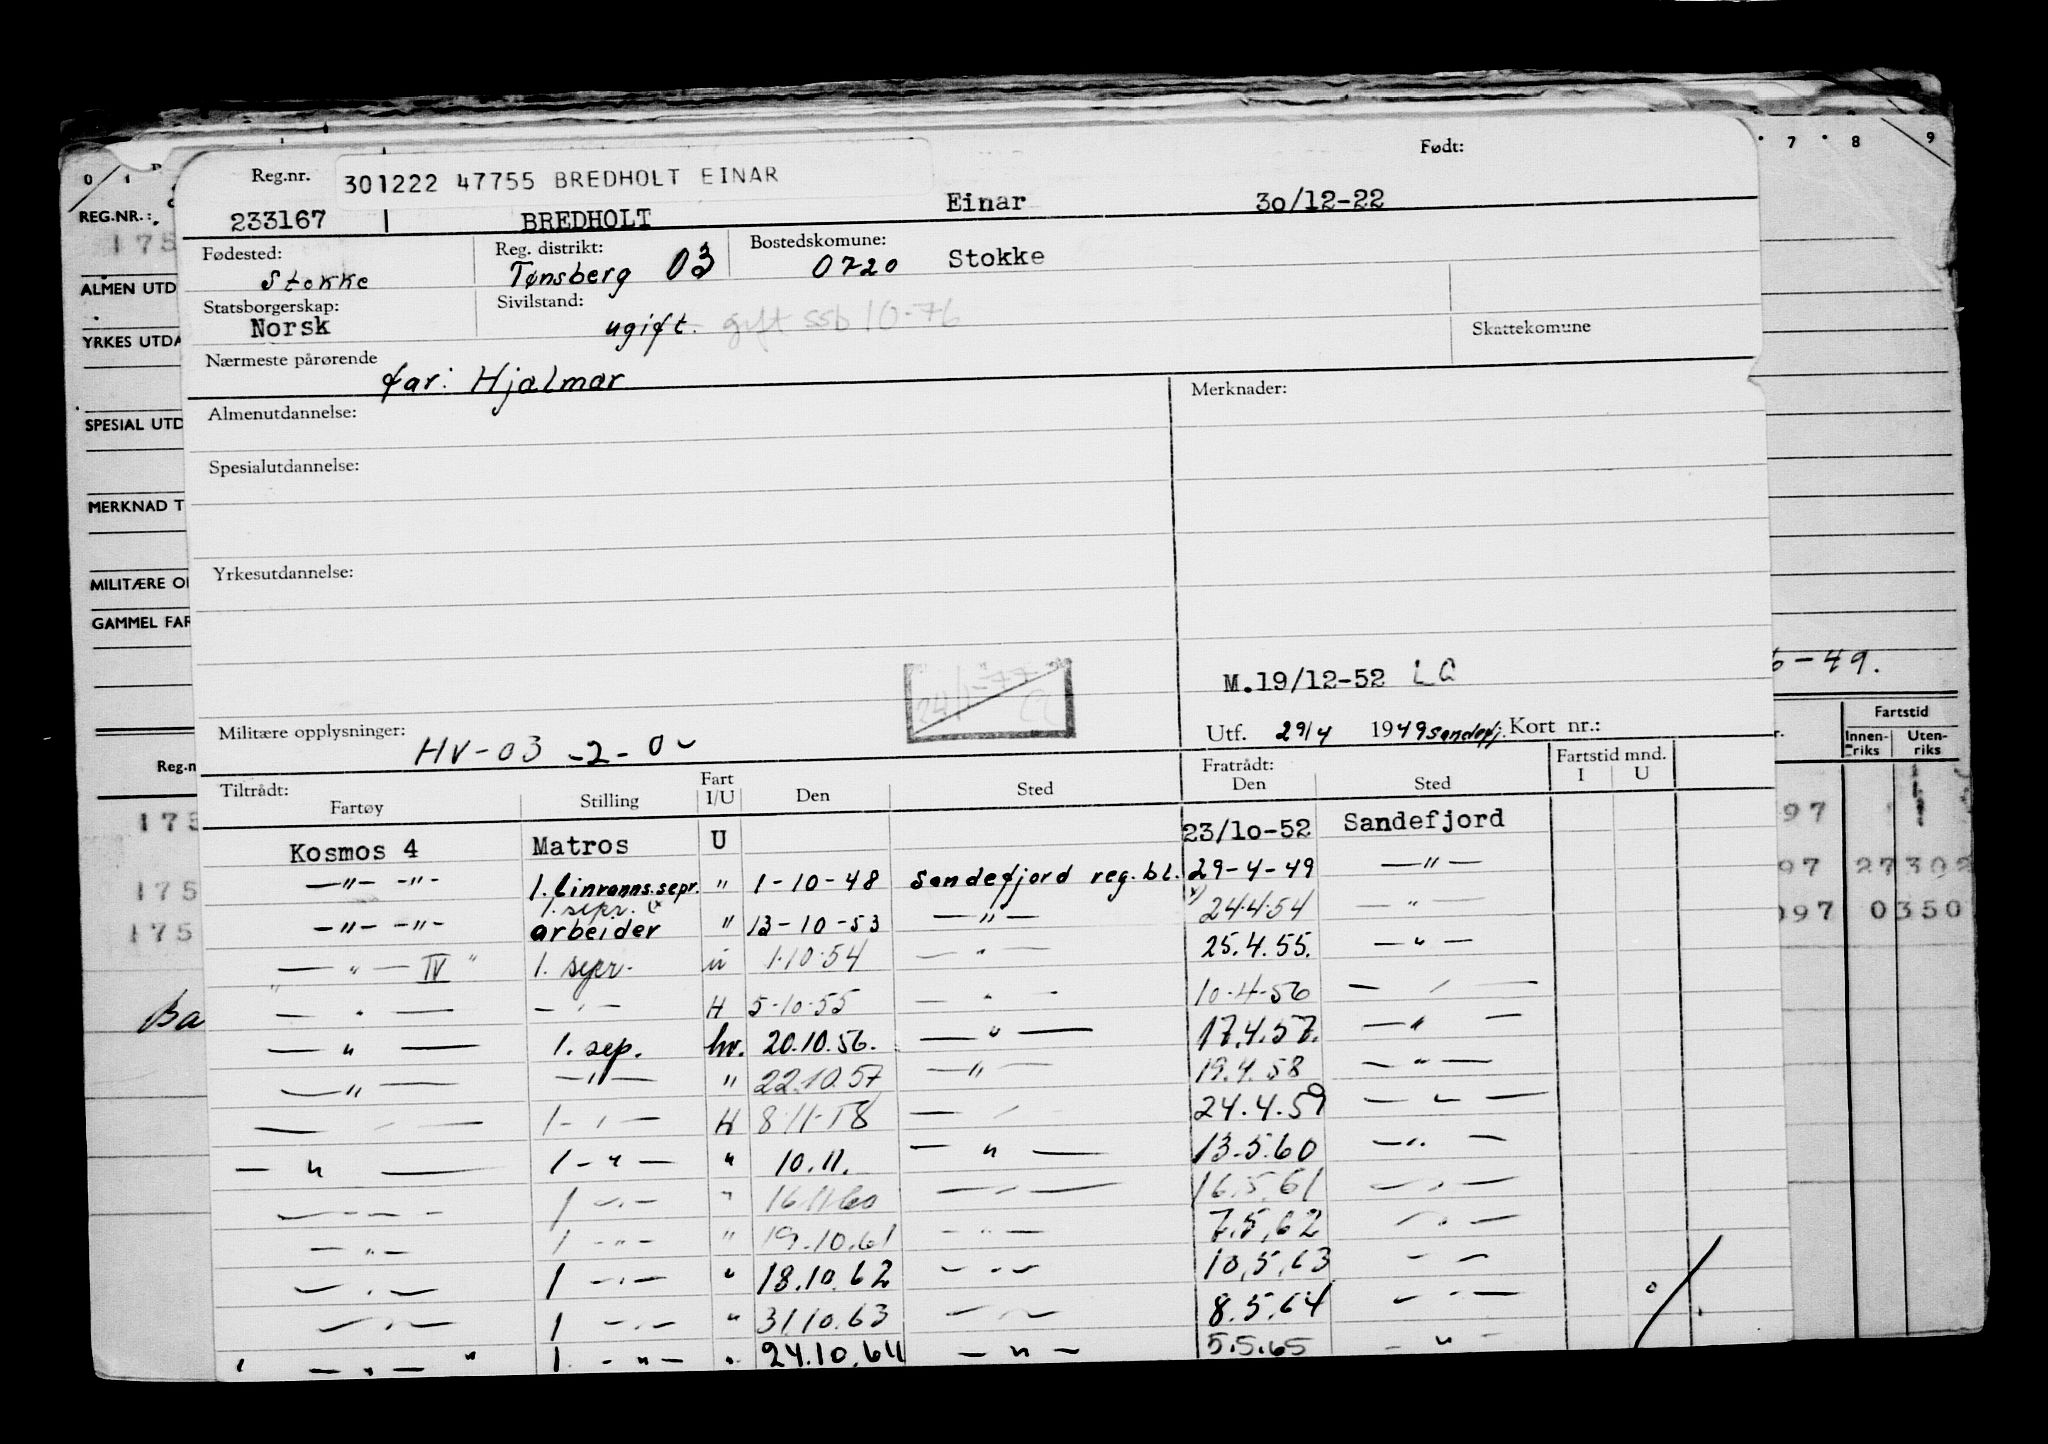 Reg.nr. 301222 47755 BREDHOLT EINAR Født:
233167 BREDHOLT Einar 30/12-22
Fødested: Stokke Reg. distrikt: Tønsberg 03 Bostedskomune: 0720 Stokke
Statsborgerskap: Norsk Sivilstand: ugift. gift ssb 10-76 Skattekomune
Nærmeste pårørende far: Hjalmar
Almenutdannelse: Merknader:
Spesialutdannelse:
Yrkesutdannelse:
M.19/12-52
Militære opplysninger: HV-03-2-0 Utf. 29/4 1949 Sandefj. Kort nr.:
Tiltrådt: Fratrådt: Fartstid mnd.
Fartøy Stilling Fart I/U Den Sted Den Sted I U
Kosmos 4 Matros U 23/10-52 Sandefjord
—"— —"— " 1-10-48 Sandefjord reg.bl. 29-4-49 —"—
1. sepr.
—"— —"— arbeider " 13-10-53 —"— 24.4.54 —"—
—"— IV " 1. sepr. " 1.10.54 — " 25.4.55. —"—
—"— —"— H 5-10-55 —"— 10-4-56 —"—
—"— 1. sep. hv. 20.10.56. —"— 17.4.57. —"—
—"— —"— " 22.10.57 —"— 19.4.58 —"—
—"— 1-"— H 8.11.58 —"— 24.4.59 —"—
—"— 1-"— " 10.11. —"— 13.5.60 —"—
—"— 1 —"— " 16.11.60 —"— 16.5.61 —"—
—"— 1 —"— " 19.10.61 —"— 7.5.62 —"—
—"— 1 —"— " 18.10.62 —"— 10.5.63 — —
—"— 1 —"— " 31.10.63 —"— 8.5.64 —"—
" —"— " 1. —"— " 24.10.64 —"— 5.5.65 —"—
REG.NR.:
175
ALMEN UTD
YRKES UTDA
SPESIAL UTD
MERKNAD T
MILITÆRE O
GAMMEL FAR
Reg.n
175
175
175
Ba
7 8 9
-49.
Fartstid
Innen-riks Uten-riks
97
97 27302
097 0350